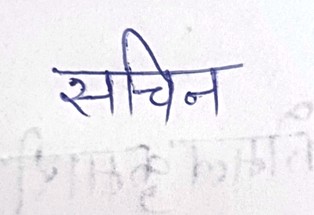 सचिन